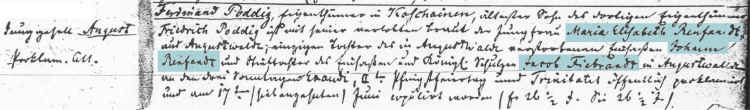 Junggesell August
Ferdinand Poddig, Eigenthümer in Koschainen, ältester Sohn des dortigen Eigenthümers
Friedrich Poddig ist mit seiner verlobten Braut der Jungfrau Maria Elisabeth Reisandt
aus Augustwalde, einzigen Tochter des in Augustwalde verstorbenen Eufassen Johann
Proklam. Att.
Reisandt und Stieftochter des Eufassen und Königl. Schulzen Jacob Fiebrandt in Augustwalde
an den drei Sonntagen Exaudi, II Pfingstfeiertag und Trinitatis öffentlich proklamirt
und am 17 Juni copulirt worden (Er 26 ½ J. Sie 26 ½ J.)